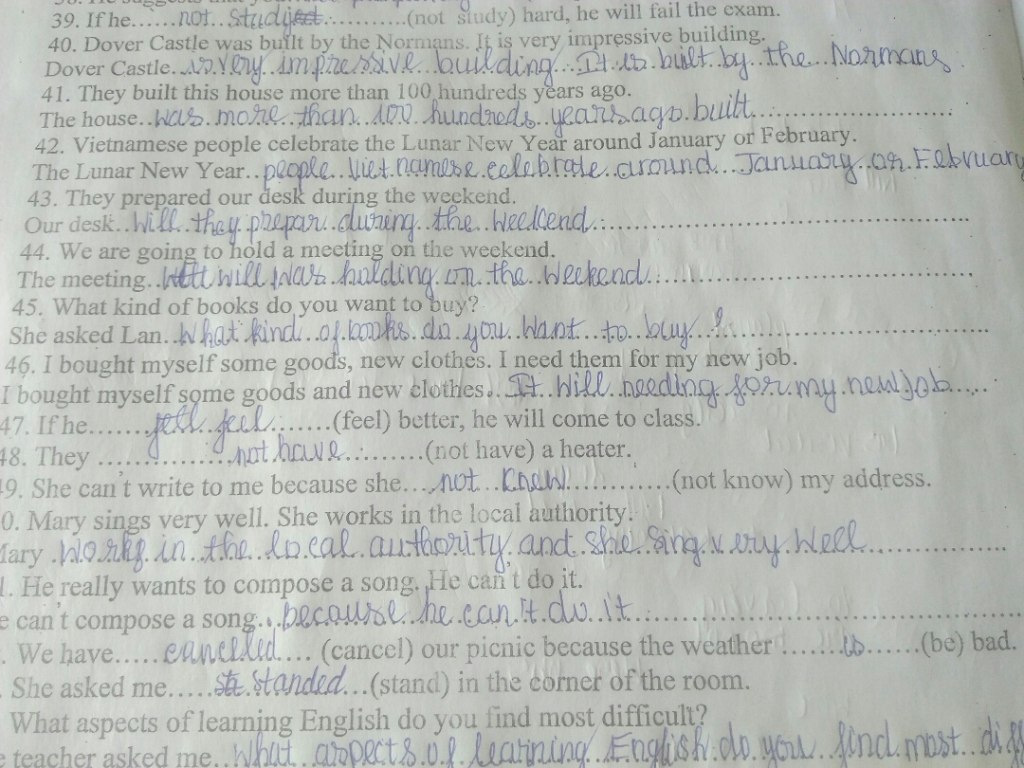 39. If he......not study.............(not study) hard, he will fail the exam.
40. Dover Castle was built by the Normans. It is very impressive building.
Dover Castle...is very impressive building. It is built by the Normans
41. They built this house more than 100 hundreds years ago.
The house..was more than 100 hundreds years ago built............................
42. Vietnamese people celebrate the Lunar New Year around January or February.
The Lunar New Year..people Vietnamese celebrate around January or February
43. They prepared our desk during the weekend.
Our desk..Will they prepar during the weekend............................
44. We are going to hold a meeting on the weekend.
The meeting.. will was holding on the weekend............................
45. What kind of books do you want to buy?
She asked Lan..What kind of books do you want to buy ?............................
46. I bought myself some goods, new clothes. I need them for my new job.
I bought myself some goods and new clothes.. It will needing for my new job......
47. If he.......feel.......(feel) better, he will come to class.
48. They ..............not have.........(not have) a heater.
9. She can't write to me because she....not know............(not know) my address.
0. Mary sings very well. She works in the local authority.
Mary .works in the local authority and she sing very well..................
. He really wants to compose a song. He can't do it.
e can't compose a song...because he can't do it............................
. We have.....cancelled.... (cancel) our picnic because the weather .......is.......(be) bad.
. She asked me..... standed...(stand) in the corner of the room.
What aspects of learning English do you find most difficult?
e teacher asked me..What aspects of learning English do you find most diff